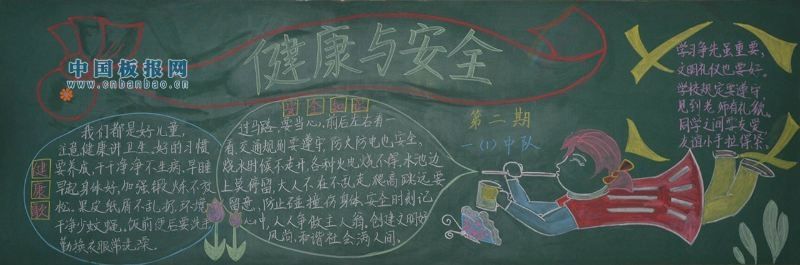 健康与安全
中国板报网
www.cnbanbao.cn
健康歌
我们都是好儿童,
注意健康讲卫生。好的习惯
要养成,干干净净不生病。早睡
早起身体好,加强锻炼不放
松。果皮纸屑不乱扔,环境
干净少蚊蝇。饭前便后要洗手
勤换衣服常洗澡。
过马路,要当心,前后左右看一
看,交通规则要遵守,防火防电也安全。
烧水时候不走开,各种火电
上莫停留,大人不在不乱走,爬高跳远要
留意,防止碰撞伤身体,安全时刻记
心中,人人争做主人翁,创建文明好
风尚,和谐社会满人间。
第二期
一(1)中队
学习争先虽重要,
文明礼仪也要好。
学校规定要遵守,
见到老师有礼貌。
同学之间要友爱,
友谊小手拉得紧。